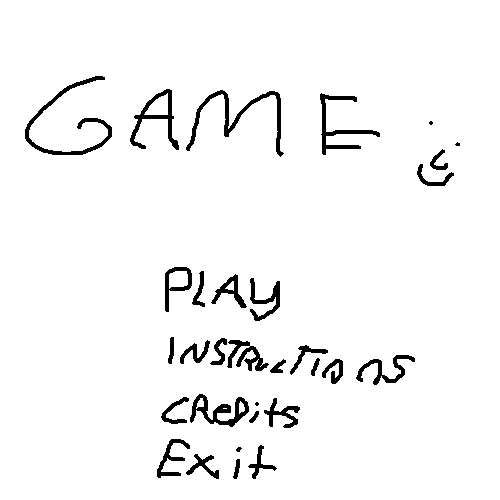 GAME
PLAY
INSTRUCTIONS
CReDits
Exit